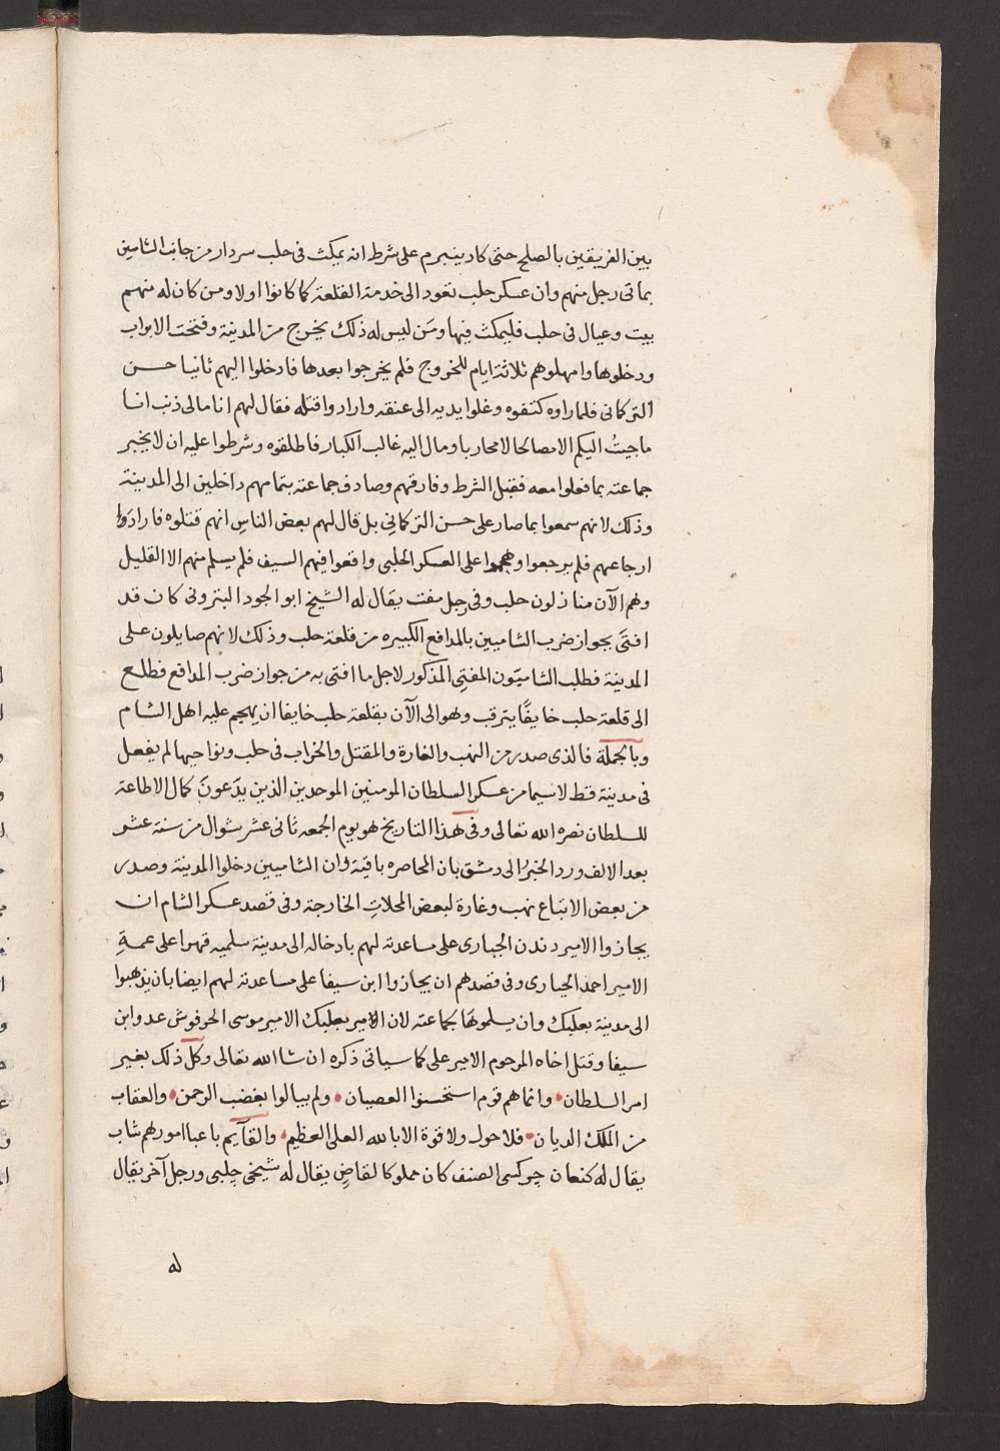 بين الفريقين بالصلح حتى كاد ينبرم على شرط انه يمكث فى حلب سردار من جانب الشاميين
بماتى رجل منهم وان عسكر حلب تعود الى خدمة القلعة كما كانوا اولا ومن كان له منهم
بيت وعيال فى حلب فليمكث فيها ومَن ليس له ذلك يخرج من المدينة وفتحت الابواب
ودخلوها وامهلوهم ثلاثة ايام للخروج فلم يخرجوا بعدها فادخلوا اليهم ثانيا حسن
التركمانى فلما راوه كتفوه وغلوا يديه الى عنقه وارادوا قتله فقال لهم انا مالى ذنب انا
ماجيتُ اليكم الا مصالحا لا محاربا ومال اليه غالب الكبار فاطلقوه وشرطوا عليه ان لا يخبر
جماعته بما فعلوا معه فقبل الشرط وفارقهم وصادف جماعته بتمامهم داخلين الى المدينة
وذلك لانهم سمعوا بما صار على حسن التركمانى بل قال لهم بعض الناس انهم قتلوه فاراد
ارجاعهم فلم يرجعوا وهجموا على العسكر الحلبى واقعوا فيهم السيف فلم يسلم منهم الا القليل
وهم الآن منازلون حلب وفى رجل مفت يقال له الشيخ ابو الجود البترونى كان قد
افتَى بجواز ضرب الشاميين بالمدافع الكبيره من قلعة حلب وذلك لانهم صايلون على
المدينة فطلب الشاميّون المفتى المذكور لاجل ما افتى به من جواز ضرب المدافع فطلع
الى قلعة حلب خايفًا يترقب وهو الى الآن بقلعة حلب خايفا ان يهجم عليه اهل الشام
وبالجملة فالذى صدر من النهب والغارة والمقتل والخراب فى حلب ونواحيها لم يفعل
فى مدينة قط لاسيما من عسكر السلطان المومنين الموحدين الذين يدّعونَ كمال الاطاعة
للسلطان نصره الله تعالى وفى هذا التاريخ هو يوم الجمعه ثانى عشر شوال من سنة عشر
بعد الالف ورد الخبرُ الى دمشق بان المحاصره باقية وان الشاميين دخلوا المدينة وصدر
من بعض الاتباع نهب وغارة لبعض المحلاتِ الخارجة وفى قصد عسكر الشام ان
يجازوا الامير دندن الحيارى على مساعدته لهم بادخاله الى مدينة سلميه قهرا على عمهِ
الامير احمد الحيارى وفى قصدهم ان يجازوا ابن سيفا على مساعدته لهم ايضا بان يذهبوا
الى مدينة بعلبك وان يسلموهَا بجماعته لان الامير بعلبك الامير موسى الحرفوش عدو ابن
سيفا وقتل اخاه المرحوم الامير على كما سياتى ذكره ان شا الله تعالى وكل ذلك بغير
امر السلطان • وانما هم قوم استحسنوا العصيان • ولم يبالوا بغضب الرحمن • والعقاب
من الملك الديان • فلا حول ولا قوة الا بالله العلى العظيم • والقآيم باعبا امورهم شاب
يقال له كنعان چركسى الصنف كان مملوكا لقاضٍ يقال له شيخى چلبى ورجل آخر يقال
له